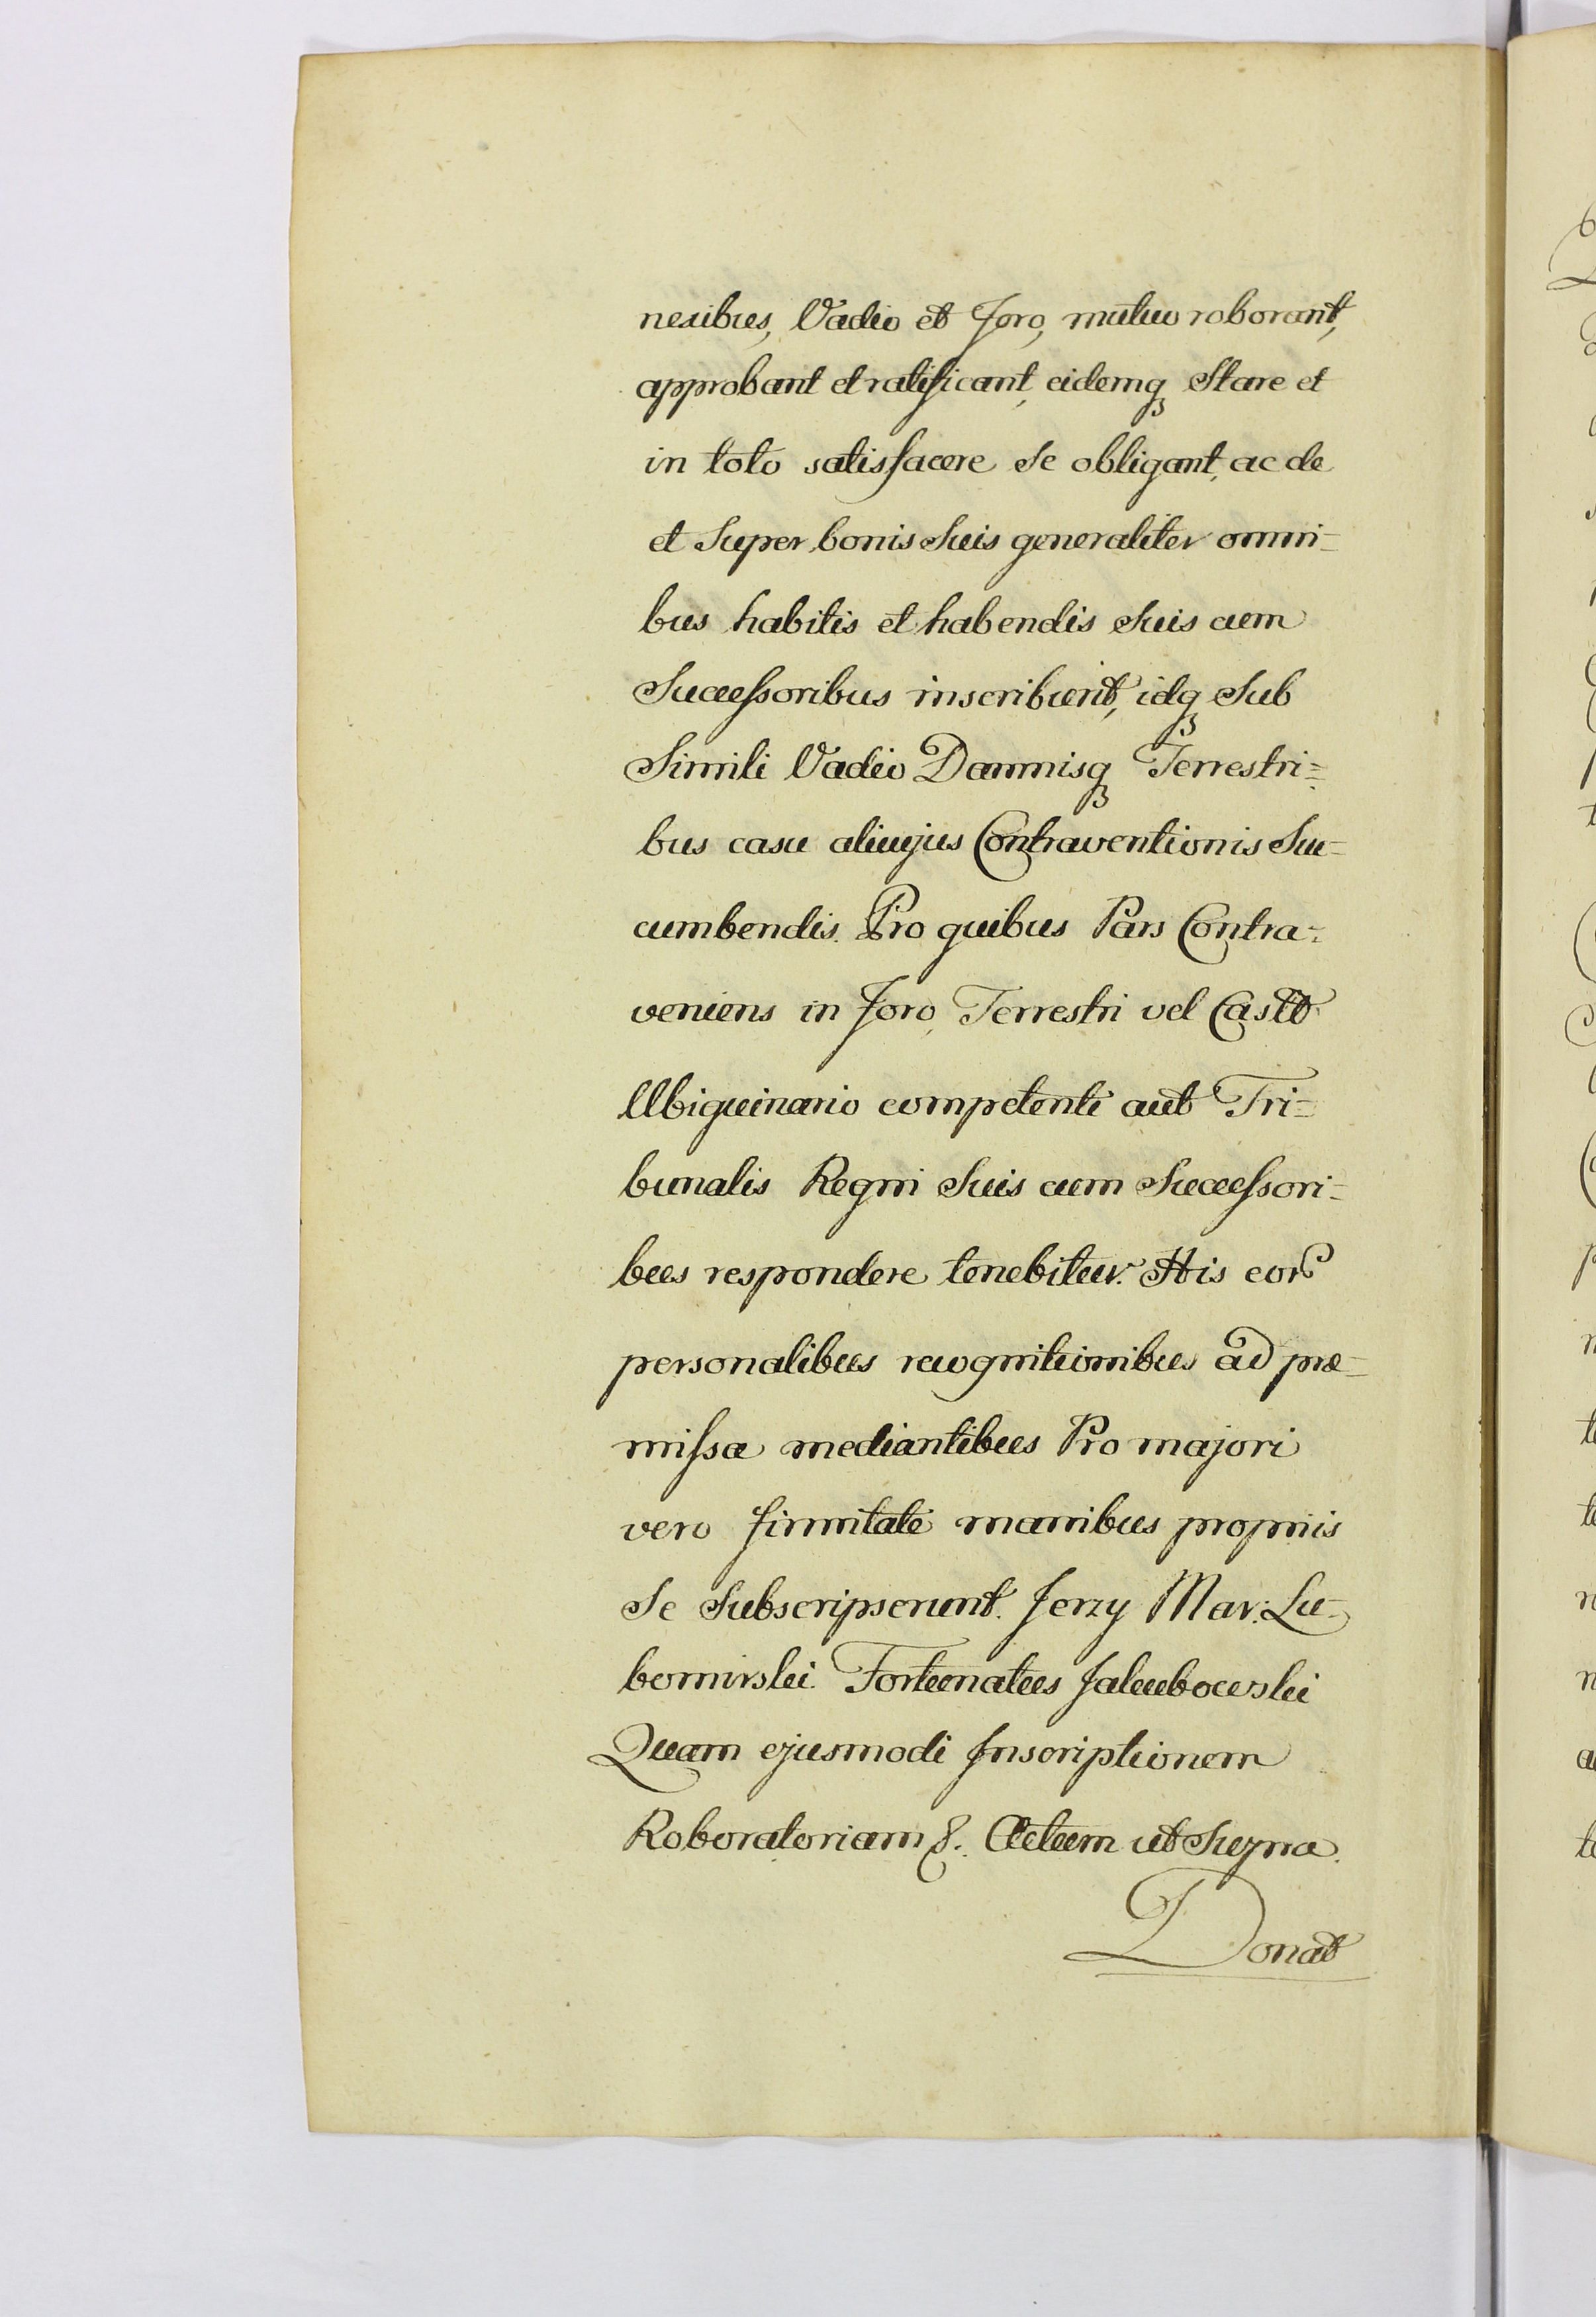 nexibus, Vadio et Foro, mutuo roborant,
approbant et ratificant, eidemq Stare et
in toto satisfacere Se obligant, ac de
et Super bonis Suis generaliter omni=
bus habitis et habendis Suis cum
Successoribus inscribunt, idq Sub
Simili Vadio Damnisq Terrestri=
bus casu alicujus Contraventionis Suc=
cumbendis. Pro quibus Pars Contra=
veniens in Foro Terrestri vel Castr
Ubiquinario competenti aut Tri=
bunalis Regni Suis cum Successori=
bus respondere tenebitur. His eor
personalibus recognitionibus ad præ=
missa mediantibus Pro majori
vero firmitate manibus propriis
Se Subscripserunt. Jerzy Mar: Lu=
bomirski. Fortunatus Jakubowski
Quam ejusmodi Inscriptionem
Roboratoriam &. Actum ut Supra.
Donat